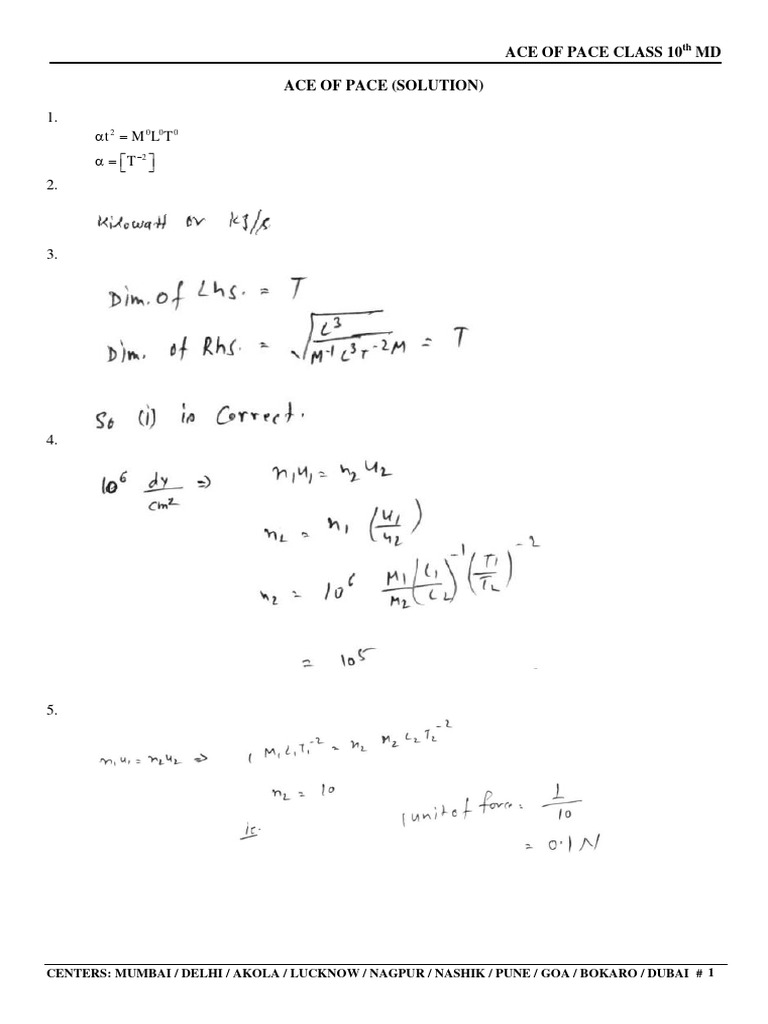 ACE OF PACE CLASS 10th MD
ACE OF PACE (SOLUTION)
1.
αt² = M⁰L⁰T⁰
α = [T⁻²]
2.
Kilowatt or kJ/s
3.
Dim. of Lhs. = T
Dim. of Rhs. = √(L³ / M⁻¹L³T⁻²M) = T
So (i) is Correct.
4.
10⁶ dy/cm² ⇒ n₁u₁ = n₂u₂
n₂ = n₁ (u₁/u₂)
n₂ = 10⁶ M₁/M₂ (L₁/L₂)⁻¹ (T₁/T₂)⁻²
= 10⁵
5.
n₁u₁ = n₂u₂ ⇒ 1 M₁L₁T₁⁻² = n₂ M₂L₂T₂⁻²
n₂ = 10
ie. 1 unit of force = 1/10
= 0.1 N
CENTERS: MUMBAI / DELHI / AKOLA / LUCKNOW / NAGPUR / NASHIK / PUNE / GOA / BOKARO / DUBAI # 1